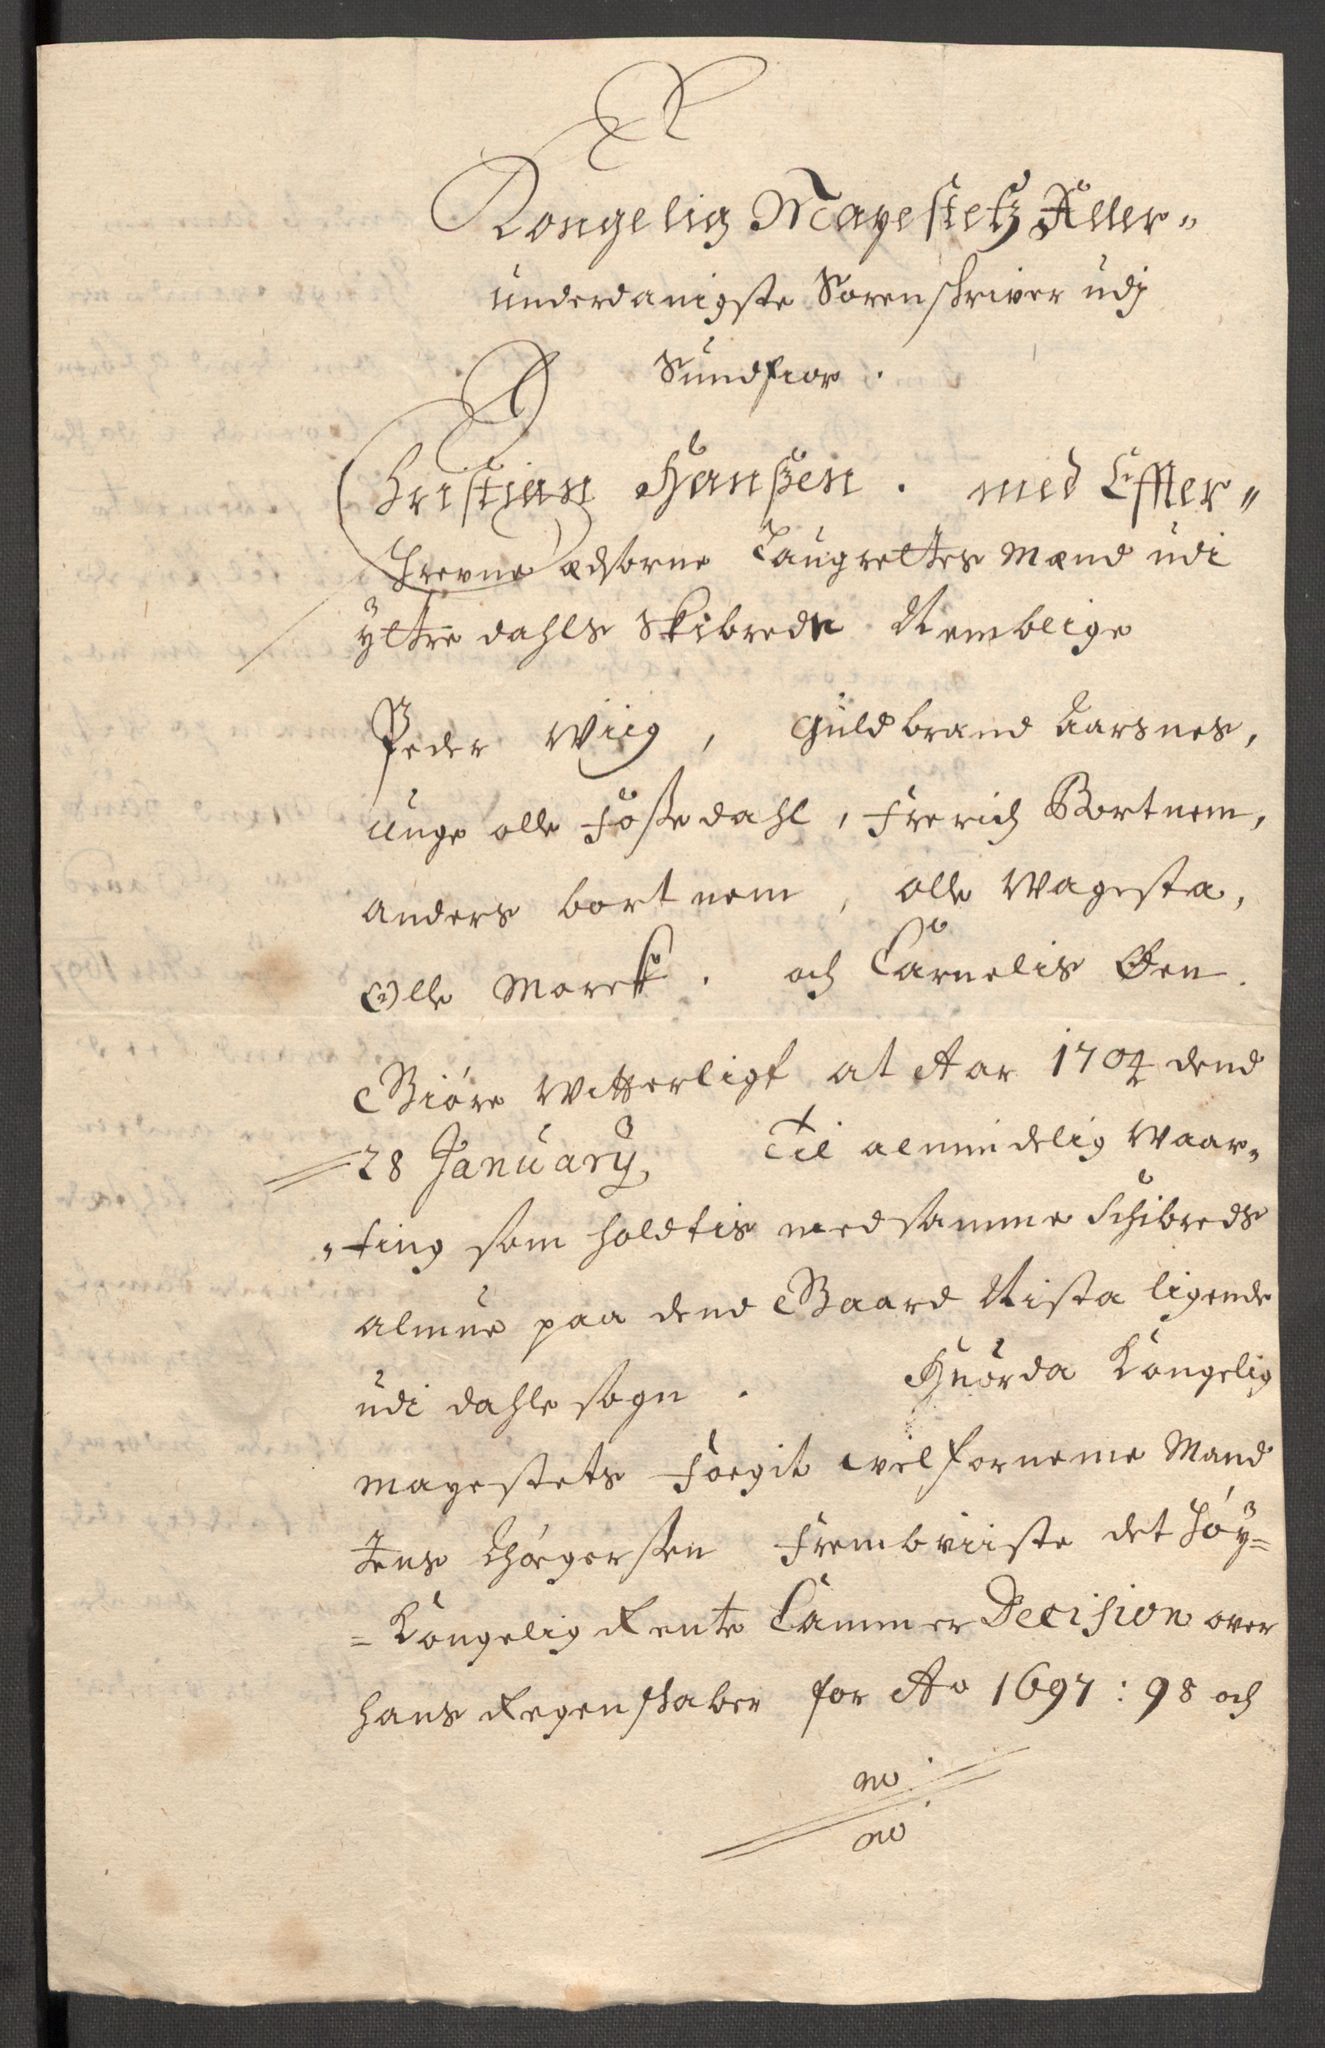 Kongelig Mayestetz Aller-
underdanigste Sorenschriver udj
Sundfior.
Christian Hanßen. med Effter-
schrevne Ædsorne Laugrettes Mænd udi
Ÿttre dahls Skibrede Nemblige
Peder Wiig, Guldbrand Aarsnes,
Unge olle Foßedahl, Frerich Bortnem,
Anders bortnem, olle Wagesta,
Olle Mork. och Carnelis Øen.
Giøre Witterligt at Aar 1704 dend
28 Januarÿ, Til almindelig Waar-
ting som holdtis med samme Schibreds
almue paa dend Gaard Nista ligende
udi dahle sogn. Huorda Kongelig
mayestets Foegit velforneme Mand
Jens Thørgersen Frembviiste det høÿ-
Kongelig Rente Cammer Decision over
hans Regenskaber for Ao 1697: 98 och